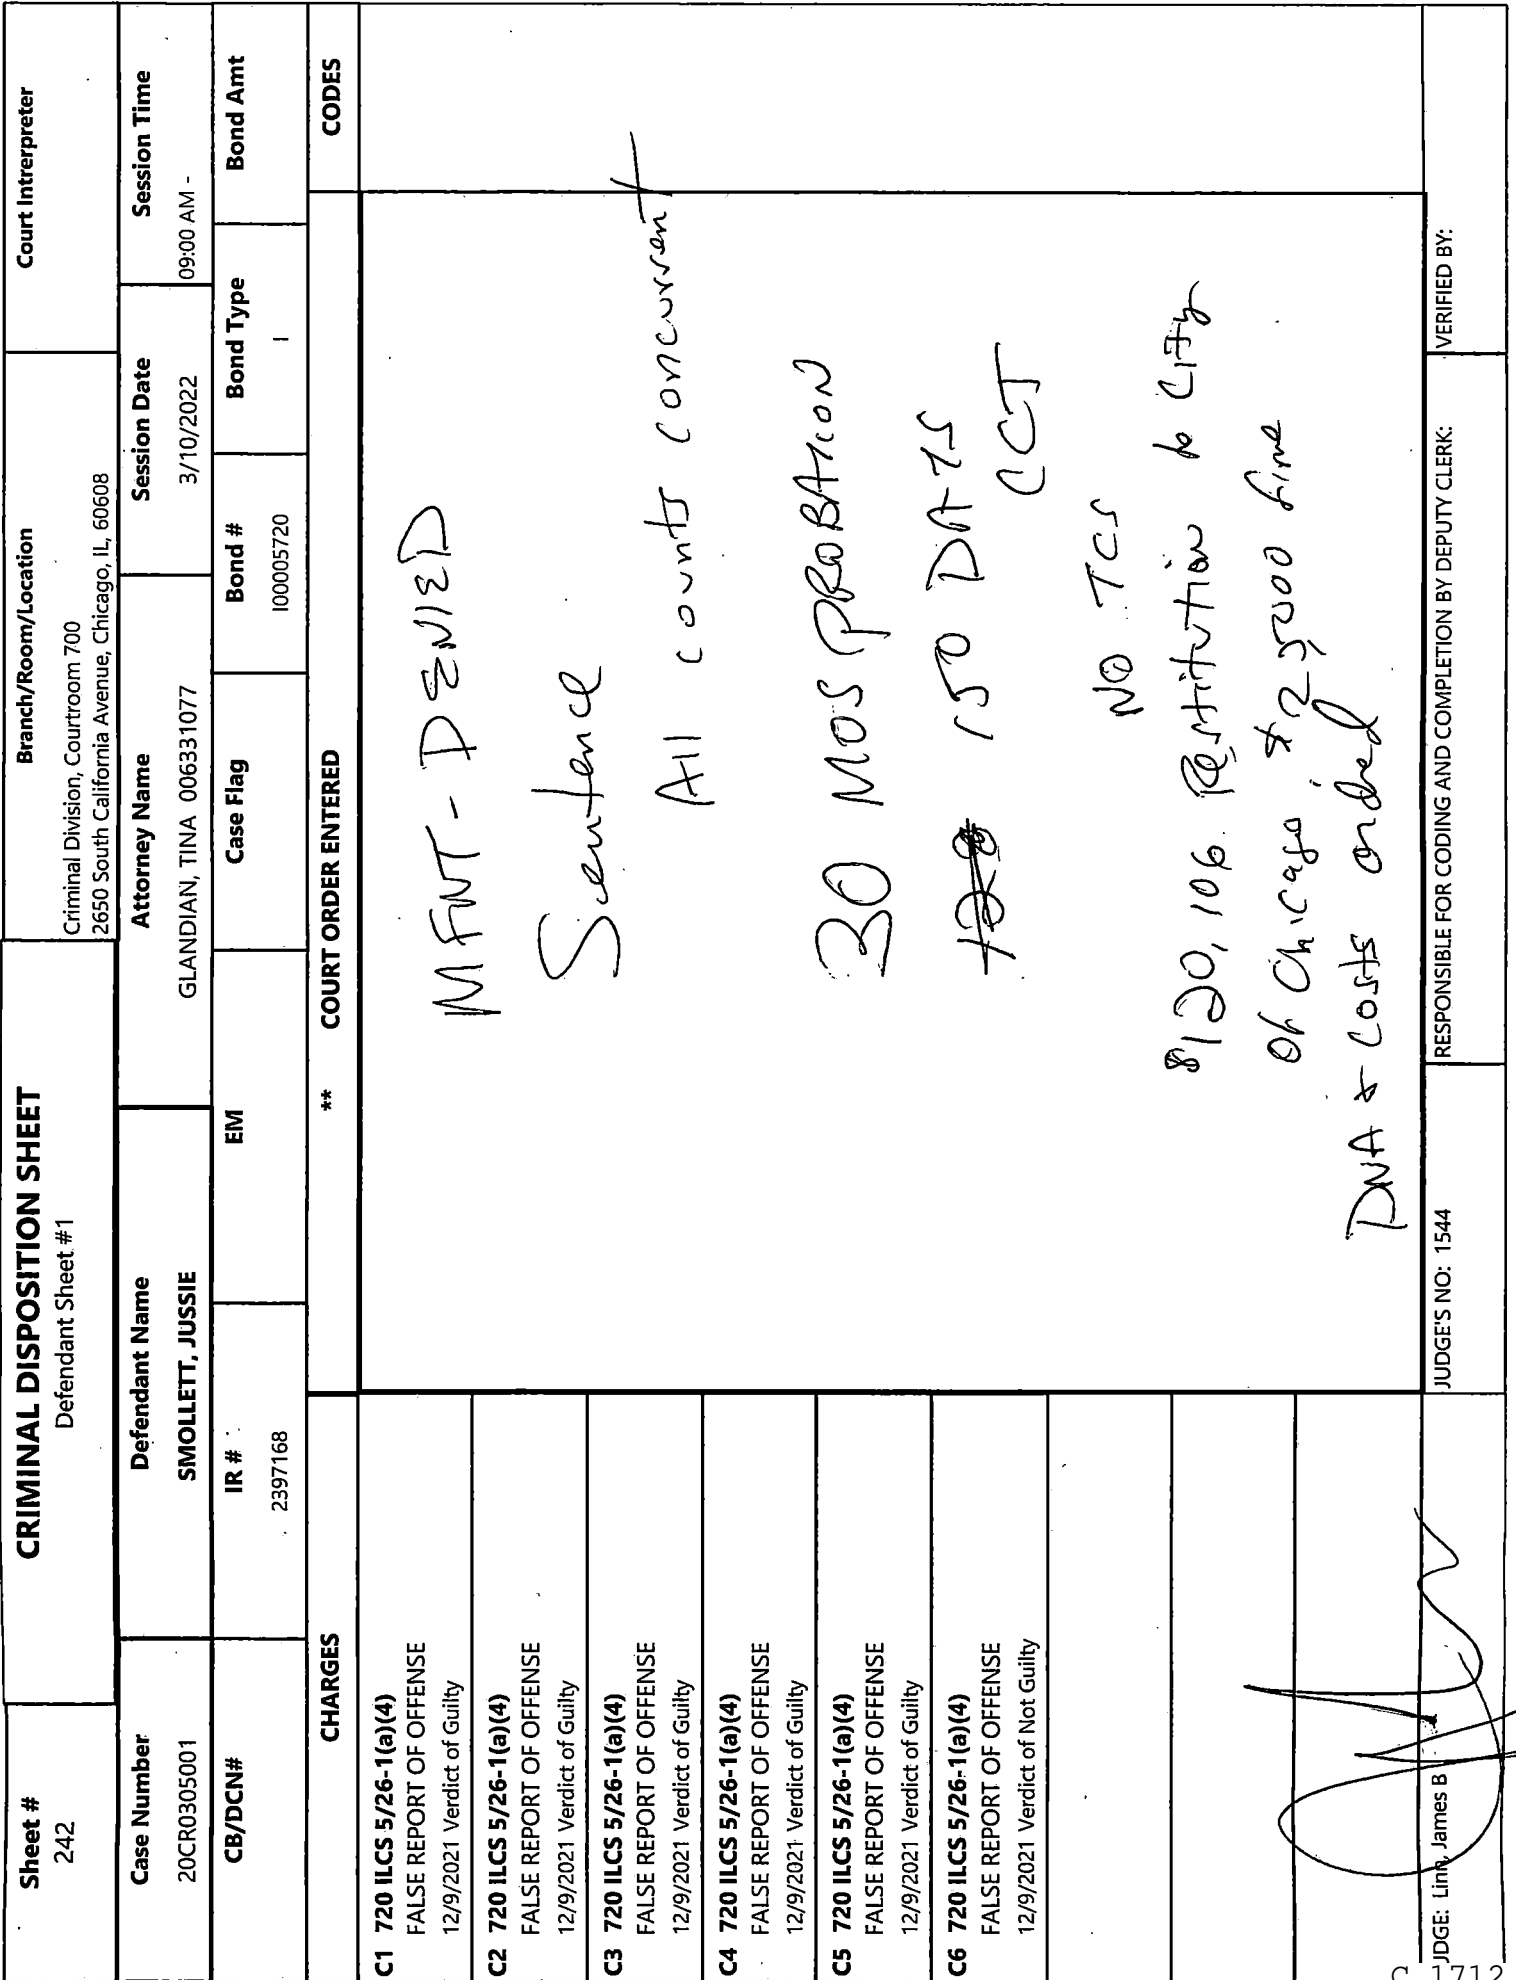 Sheet #
242
CRIMINAL DISPOSITION SHEET
Defendant Sheet #1
Branch/Room/Location
Criminal Division, Courtroom 700
2650 South California Avenue, Chicago, IL, 60608
Court Intrerpreter
Case Number
20CR0305001
Defendant Name
SMOLLETT, JUSSIE
Attorney Name
GLANDIAN, TINA 006331077
Session Date
3/10/2022
Session Time
09:00 AM -
CB/DCN#
IR #
2397168
EM
Case Flag
Bond #
I00005720
Bond Type
I
Bond Amt
CHARGES
** COURT ORDER ENTERED
CODES
C1 720 ILCS 5/26-1(a)(4)
FALSE REPORT OF OFFENSE
12/9/2021 Verdict of Guilty
C2 720 ILCS 5/26-1(a)(4)
FALSE REPORT OF OFFENSE
12/9/2021 Verdict of Guilty
C3 720 ILCS 5/26-1(a)(4)
FALSE REPORT OF OFFENSE
12/9/2021 Verdict of Guilty
C4 720 ILCS 5/26-1(a)(4)
FALSE REPORT OF OFFENSE
12/9/2021 Verdict of Guilty
C5 720 ILCS 5/26-1(a)(4)
FALSE REPORT OF OFFENSE
12/9/2021 Verdict of Guilty
C6 720 ILCS 5/26-1(a)(4)
FALSE REPORT OF OFFENSE
12/9/2021 Verdict of Not Guilty
MFNT - DENIED
Sentence
All counts concurrent
30 MOS PROBATION
150 DAYS
CCJ
NO TCS
$120,106 Restitution to City
of Chicago $25,000 fine
DNA & costs ordered
JDGE: Linn, James B
JUDGE'S NO: 1544
RESPONSIBLE FOR CODING AND COMPLETION BY DEPUTY CLERK:
VERIFIED BY:
C 1712